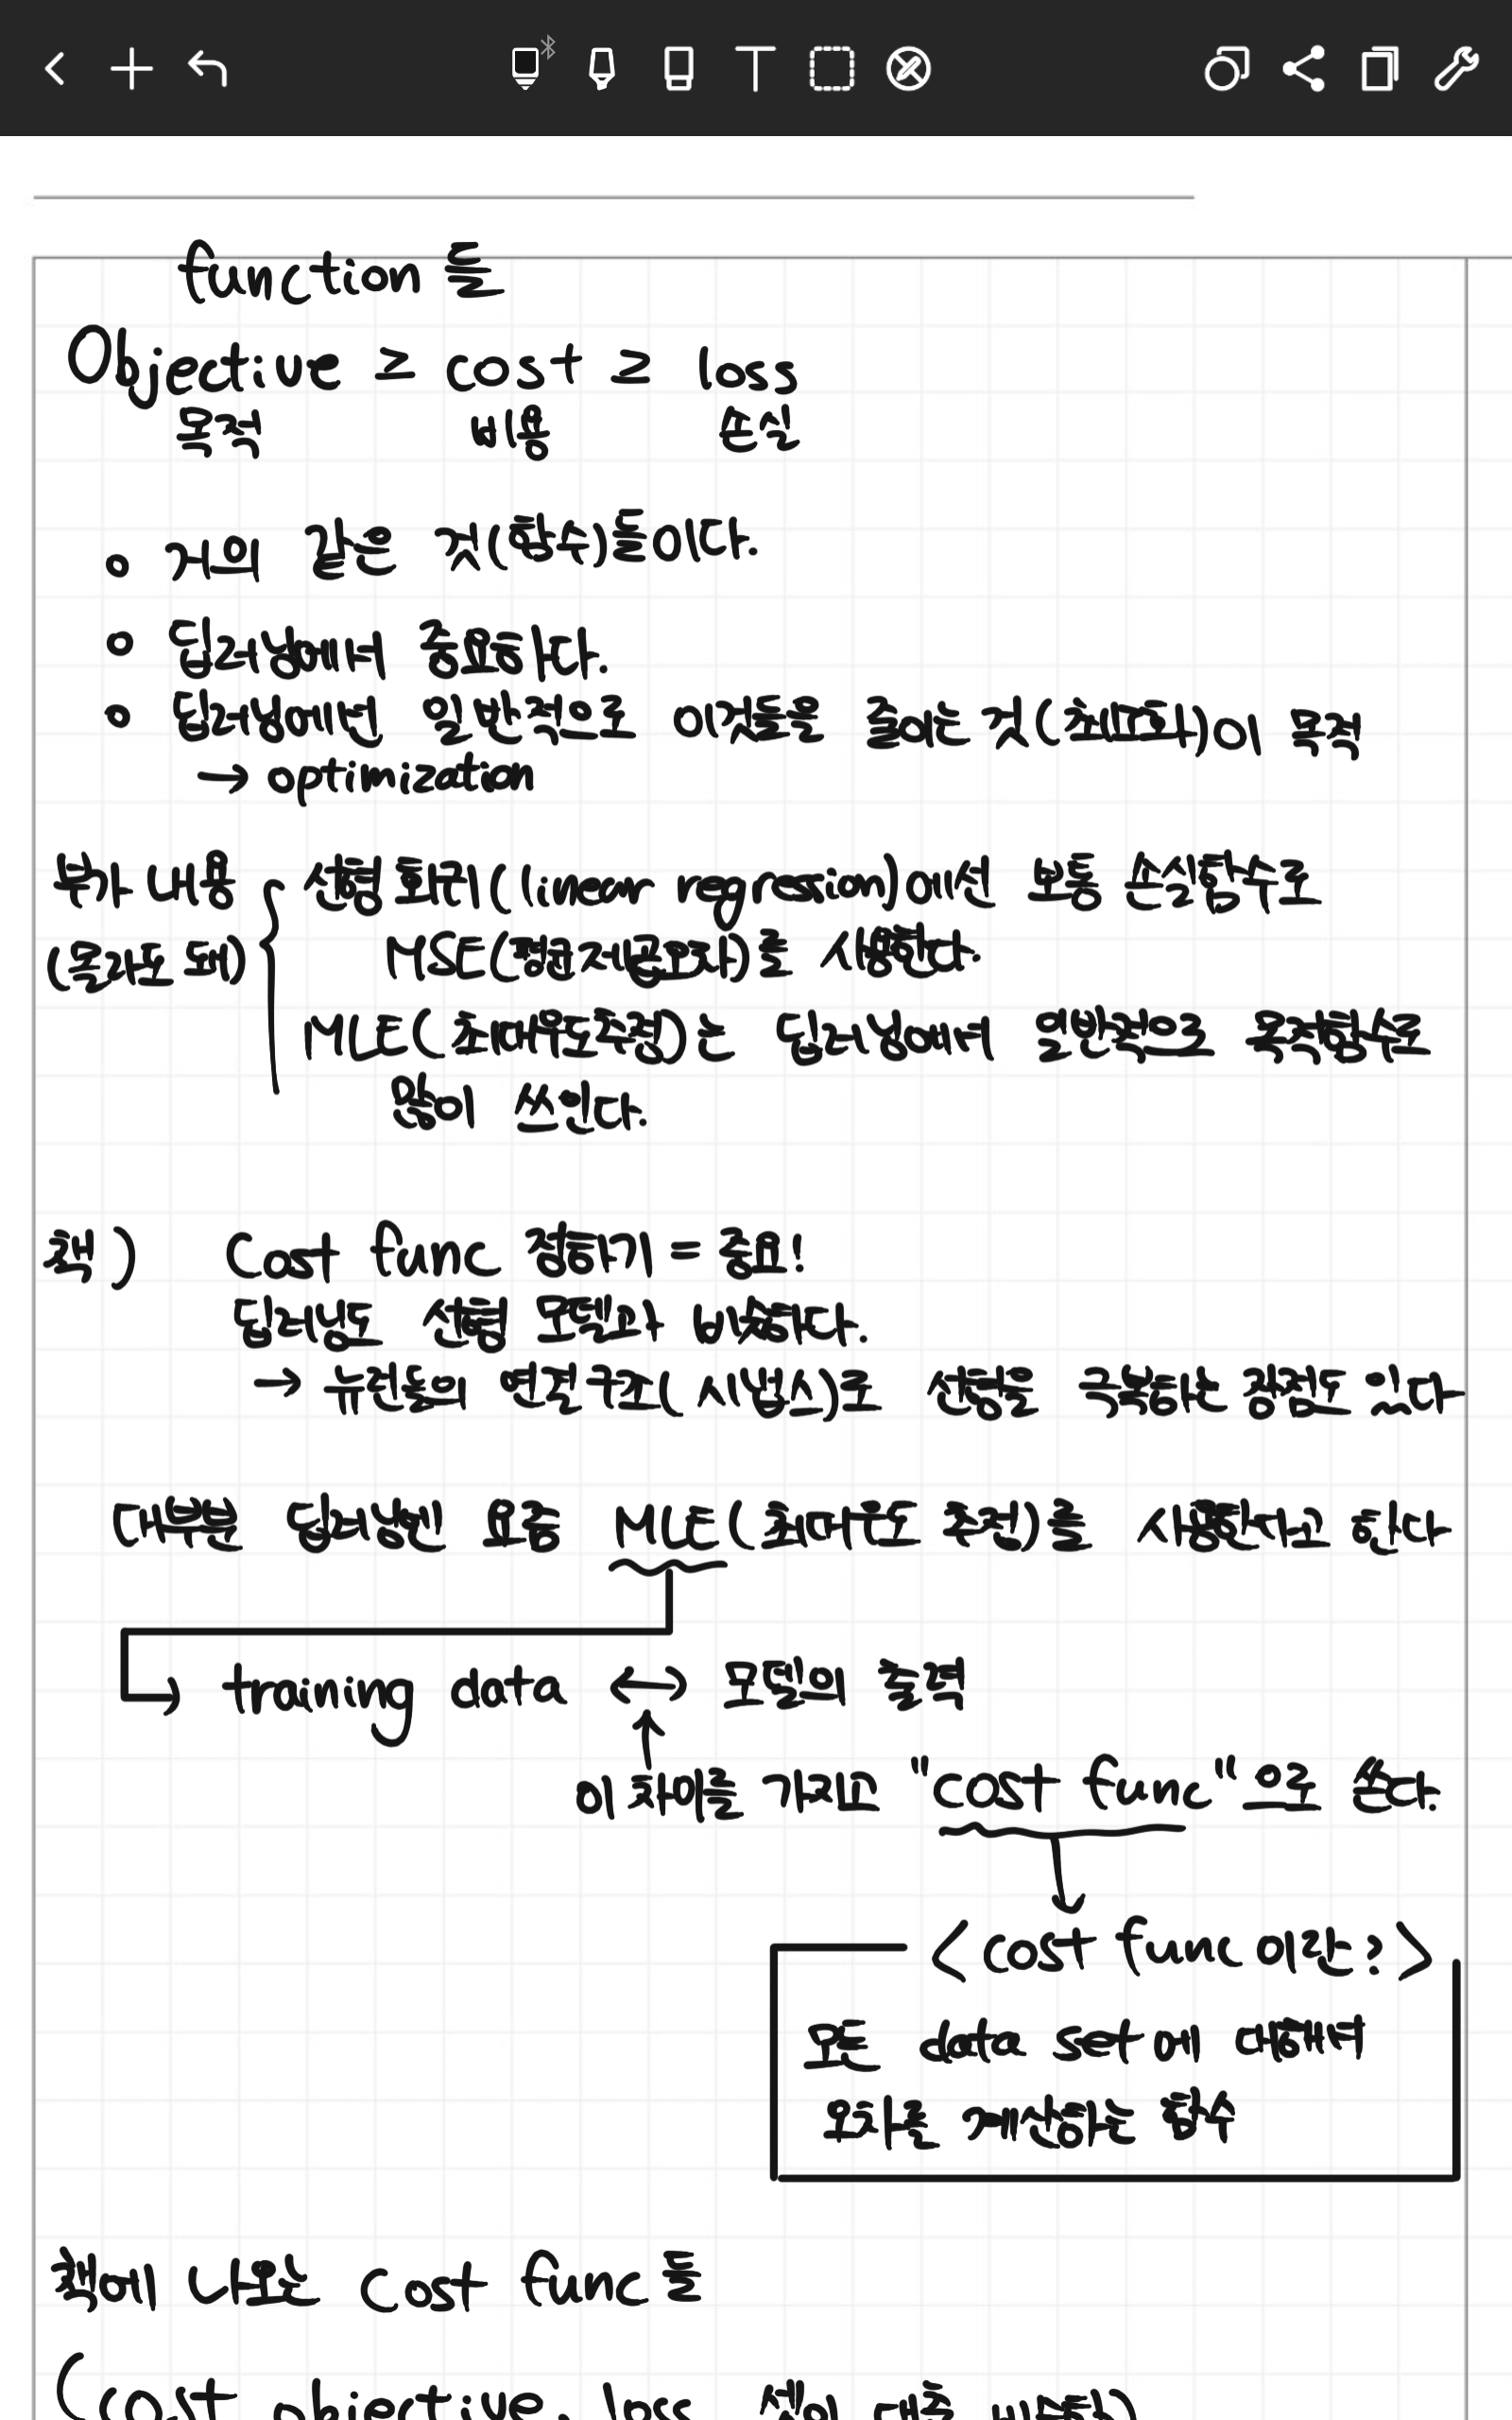 function 들
Objective ≥ cost ≥ loss
목적 비용 손실
o 거의 같은 것(함수)들이다.
o 딥러닝에서 중요하다.
o 딥러닝에선 일반적으로 이것들을 줄이는 것(최소화)이 목적
→ optimization
부가 내용 선형 회귀(linear regression)에선 보통 손실함수로
(몰라도 돼) MSE(평균제곱오차)를 사용한다.
MLE(최대우도추정)는 딥러닝에서 일반적으로 목적함수로
많이 쓰인다.
책) Cost func 정하기 = 중요!
딥러닝도 선형 모델과 비슷하다.
→ 뉴런들의 연결구조(시냅스)로 선형을 극복하는 장점도 있다
대부분 딥러닝엔 요즘 MLE(최대우도 추정)를 사용한다고 한다
training data ↔ 모델의 출력
이 차이를 가지고 "cost func"으로 쓴다.
<cost func이란?>
모든 data set에 대해서
오차를 계산하는 함수
책에 나오는 cost func들
(cost, objective, loss